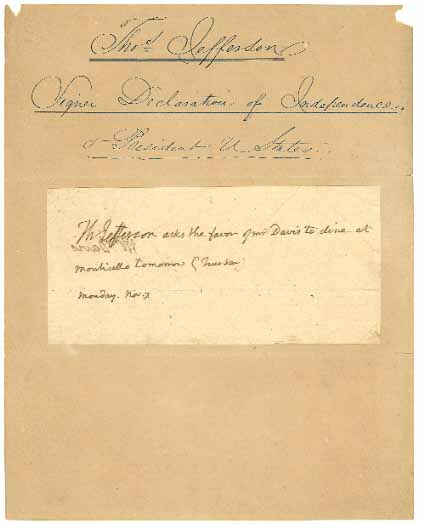 Thos. Jefferson
Signer Declaration of Independence.
& President U States.
Th Jefferson asks the favor of mr Davis to dine at
monticello tomorrow (Tuesday
Monday. Nov.